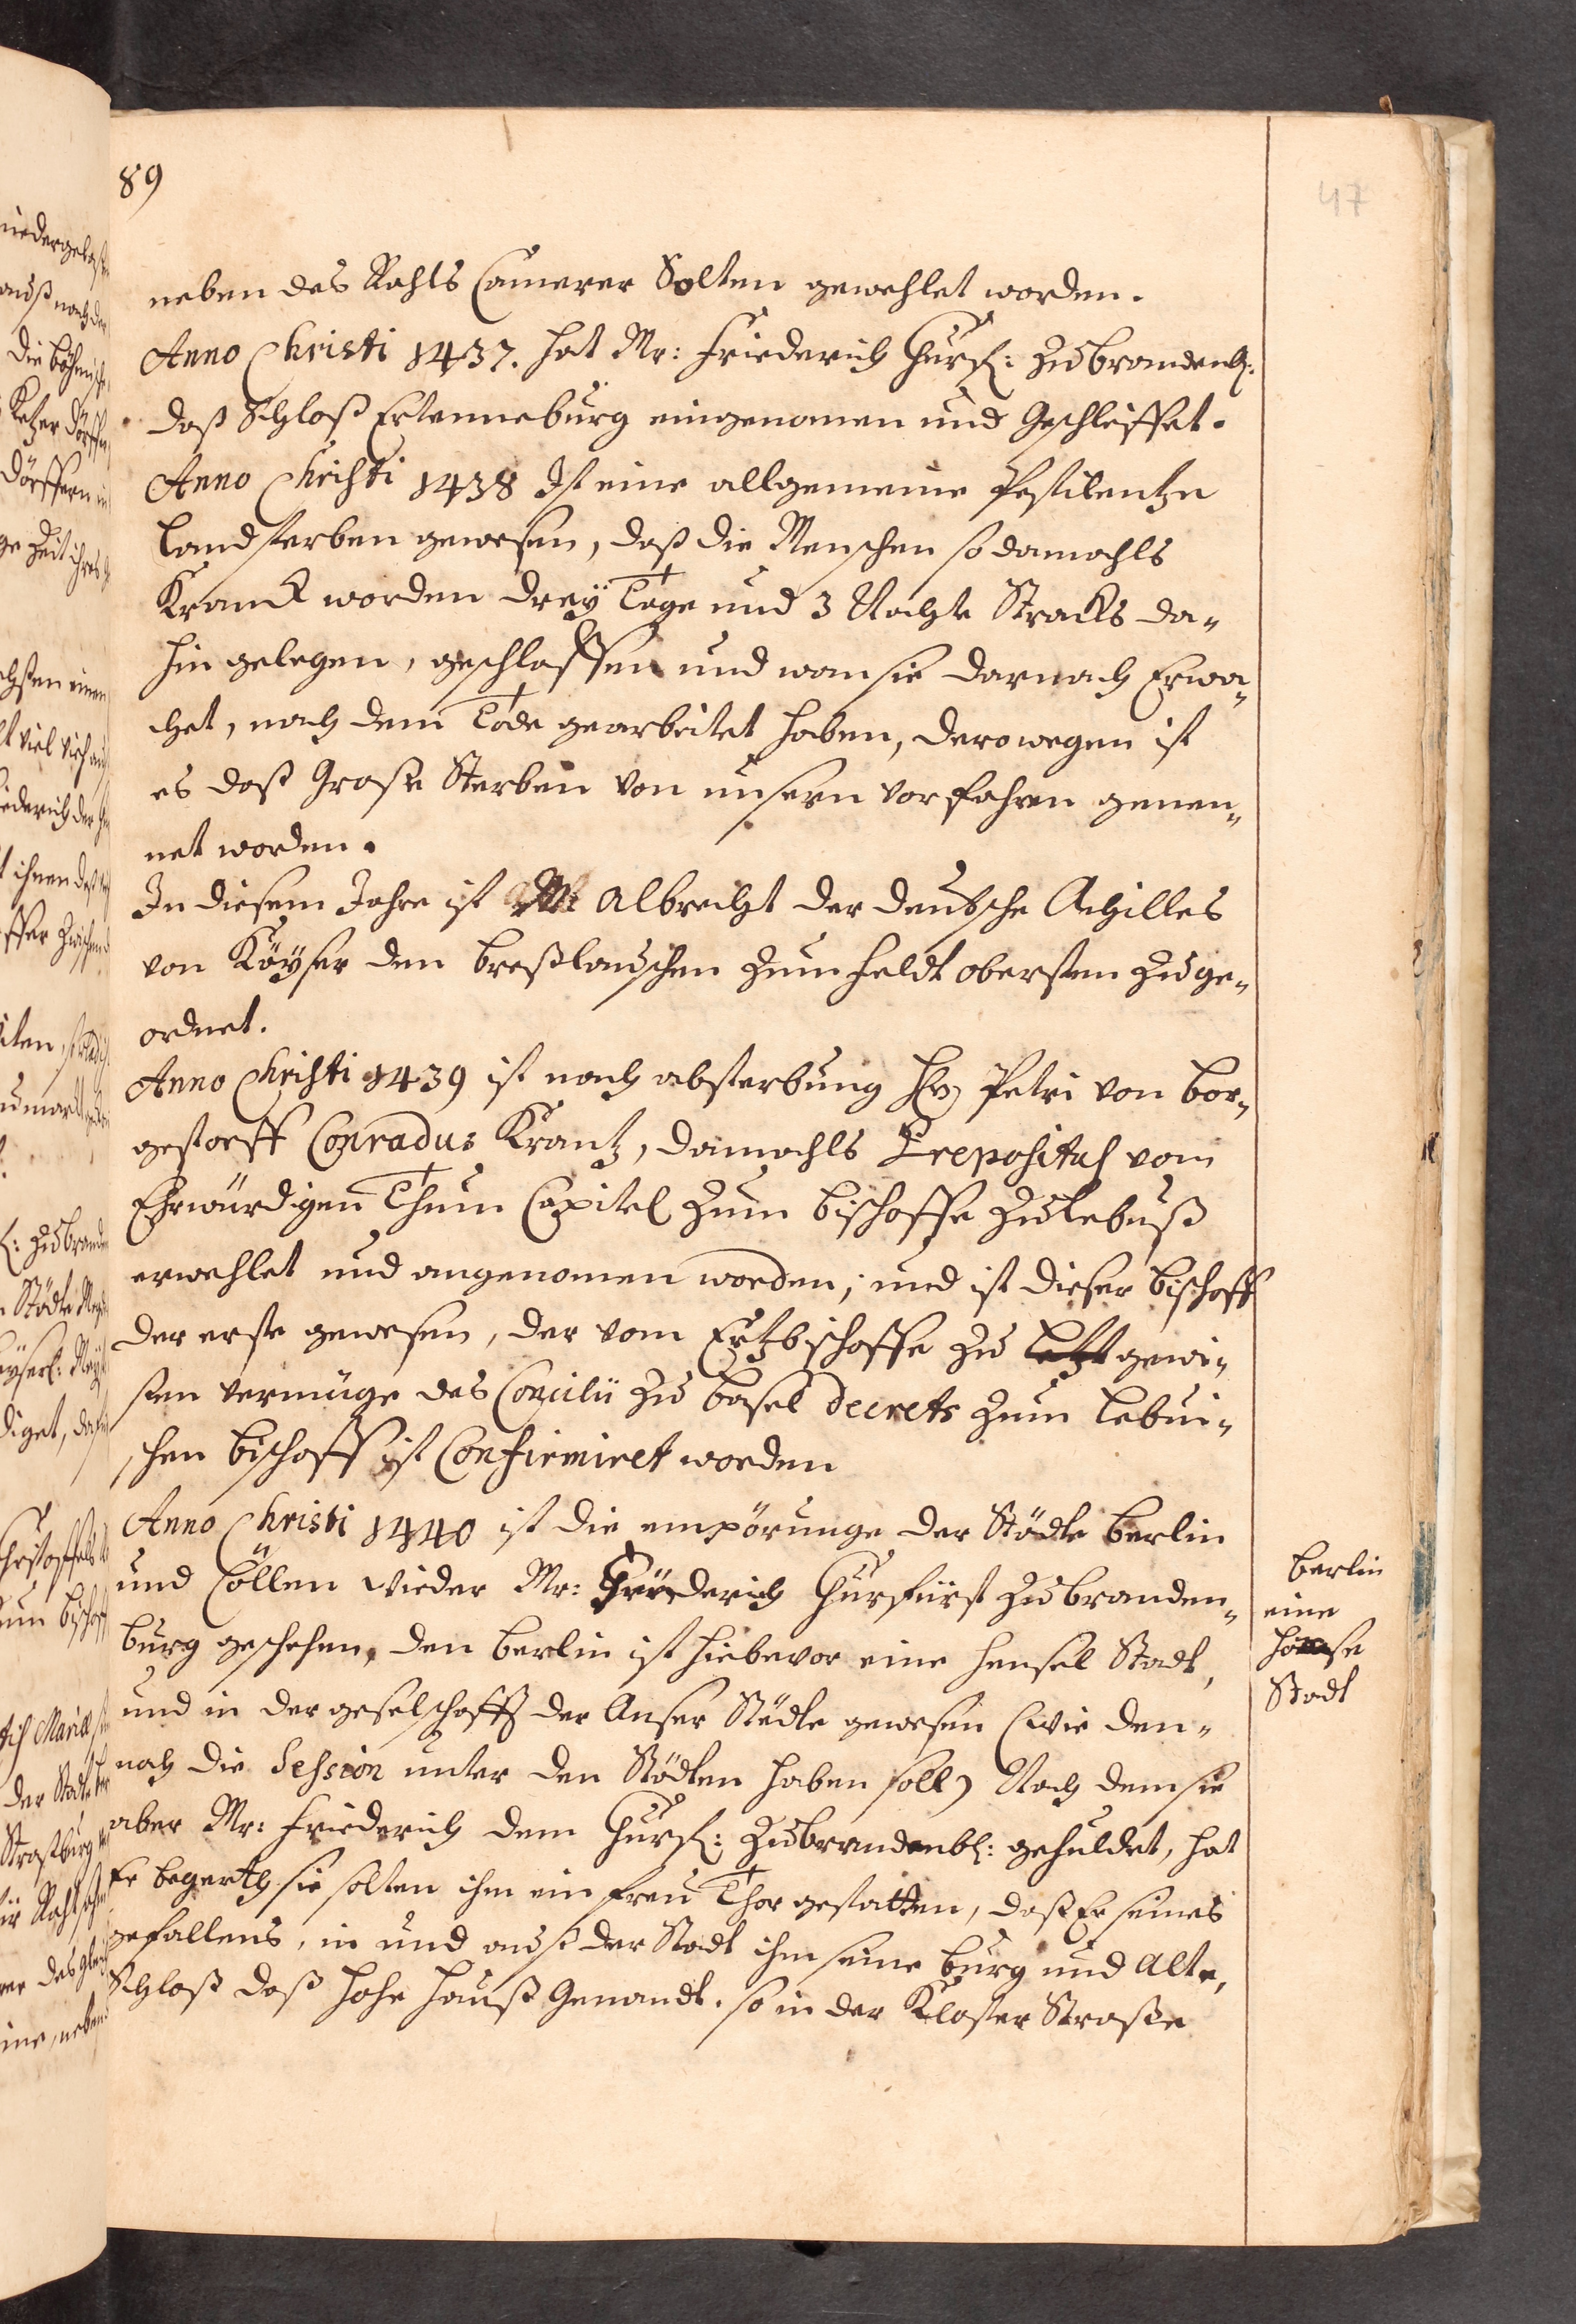 89
47
neben des Rahts Camerer Solten gewehlet worden.
Anno Christi 1437. hat Mr: Friederich Churf: zu brandenb:
daß Schloß Ertenneburg eingenomen und Geschleiffet.
Anno Christi 1438 Ist eine allgemeine Pestilentze
Landsterben gewesen, daß die Menschen so damahls
Kranck worden dreÿ Tage und 3 Nachte Stracks da-
hin gelegen, geschlaffen und wan sie darnach Erwa-
chet, nach dem Tode gearbeitet haben, derowegen ist
es daß Große Sterben von unsern vorfahren genen-
net worden.
In diesem Jahre ist M: Albrecht der deutsche Achilles
von Käÿser den Breßlauschen zum feldt obersten zuge-
ordnet.
Anno Christi 1439 ist nach absterbung Hrn Petri von Bor-
gestorff Conradus Krantz, damahls Prepositus vom
Ehrwürdigen Thum Capitel zum Bischoffe zu Lebuß
erwehlet und angenomen worden; und ist dieser Bischoff
der erste gewesen, der vom Ertzbischoffe zu gewi-
sten vermüge des Concilii zu Basel decrets zum Lebui-
schen Bischoff ist Confirmiret worden
Anno Christi 1440 ist die empörunge der Städte Berlin
und Cöllen wieder Mr: Friederich Churfürst zu branden-
burg geschehen, den Berlin ist hiebevor eine hensel Stadt,
und in der geselschafft der Anser Städte gewesen (wie den-
noch die Session unter den Städten haben soll) Nach dem sie
aber Mr: Friederich dem Churf: zu brandenb: gehuldet, hat
Er begerth sie solten ihm ein freÿ Thor gestatten, daß Er seines
gefallens, in und auß der Stadt ihm seine burg und Alte,
Schloß daß hohe Hauß Genandt. so in der Kloster Straße
Berlin
eine
hanse
Stadt